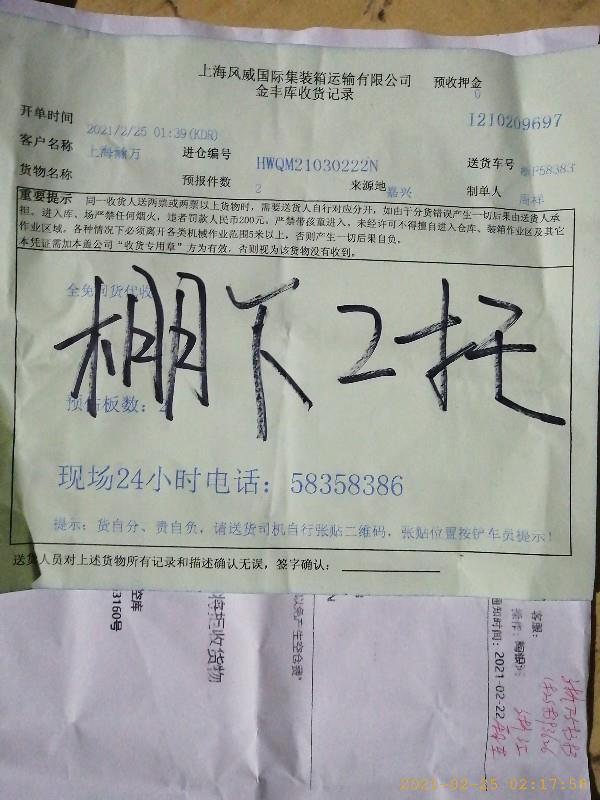 上海风威国际集装箱运输有限公司 预收押金
金丰库收货记录 0
开单时间 2021/2/25 01:39(KDR) I210209697
客户名称 上海瀚万 进仓编号 HWQM21030222N 送货车号 F58383
货物名称 预报件数 2 来源地 嘉兴 制单人 周祥
重要提示 同一收货人送两票或两票以上货物时,需要送货人自行对应分开,如由于分货错误产生一切后果由送货人承
担。进入库、场严禁任何烟火,违者罚款人民币200元。严禁带孩童进入,未经许可不得擅自进入仓库、装箱作业区及其它
作业区域。各种情况下必须离开各类机械作业范围5米以上,否则产生一切后果自负。
本凭证需加本盖公司“收货专用章”方为有效,否则视为该货物没有收到。
棚下2托
预估板数:2
现场24小时电话:58358386
提示:货自分、贵自负,请送货司机自行张贴二维码,张贴位置按铲车员提示!
送货人员对上述货物所有记录和描述确认无误,签字确认:
3160号
收货物
客服:
操作:
通知时间:2021-02-22
浙江
2021-02-25 02:17:56